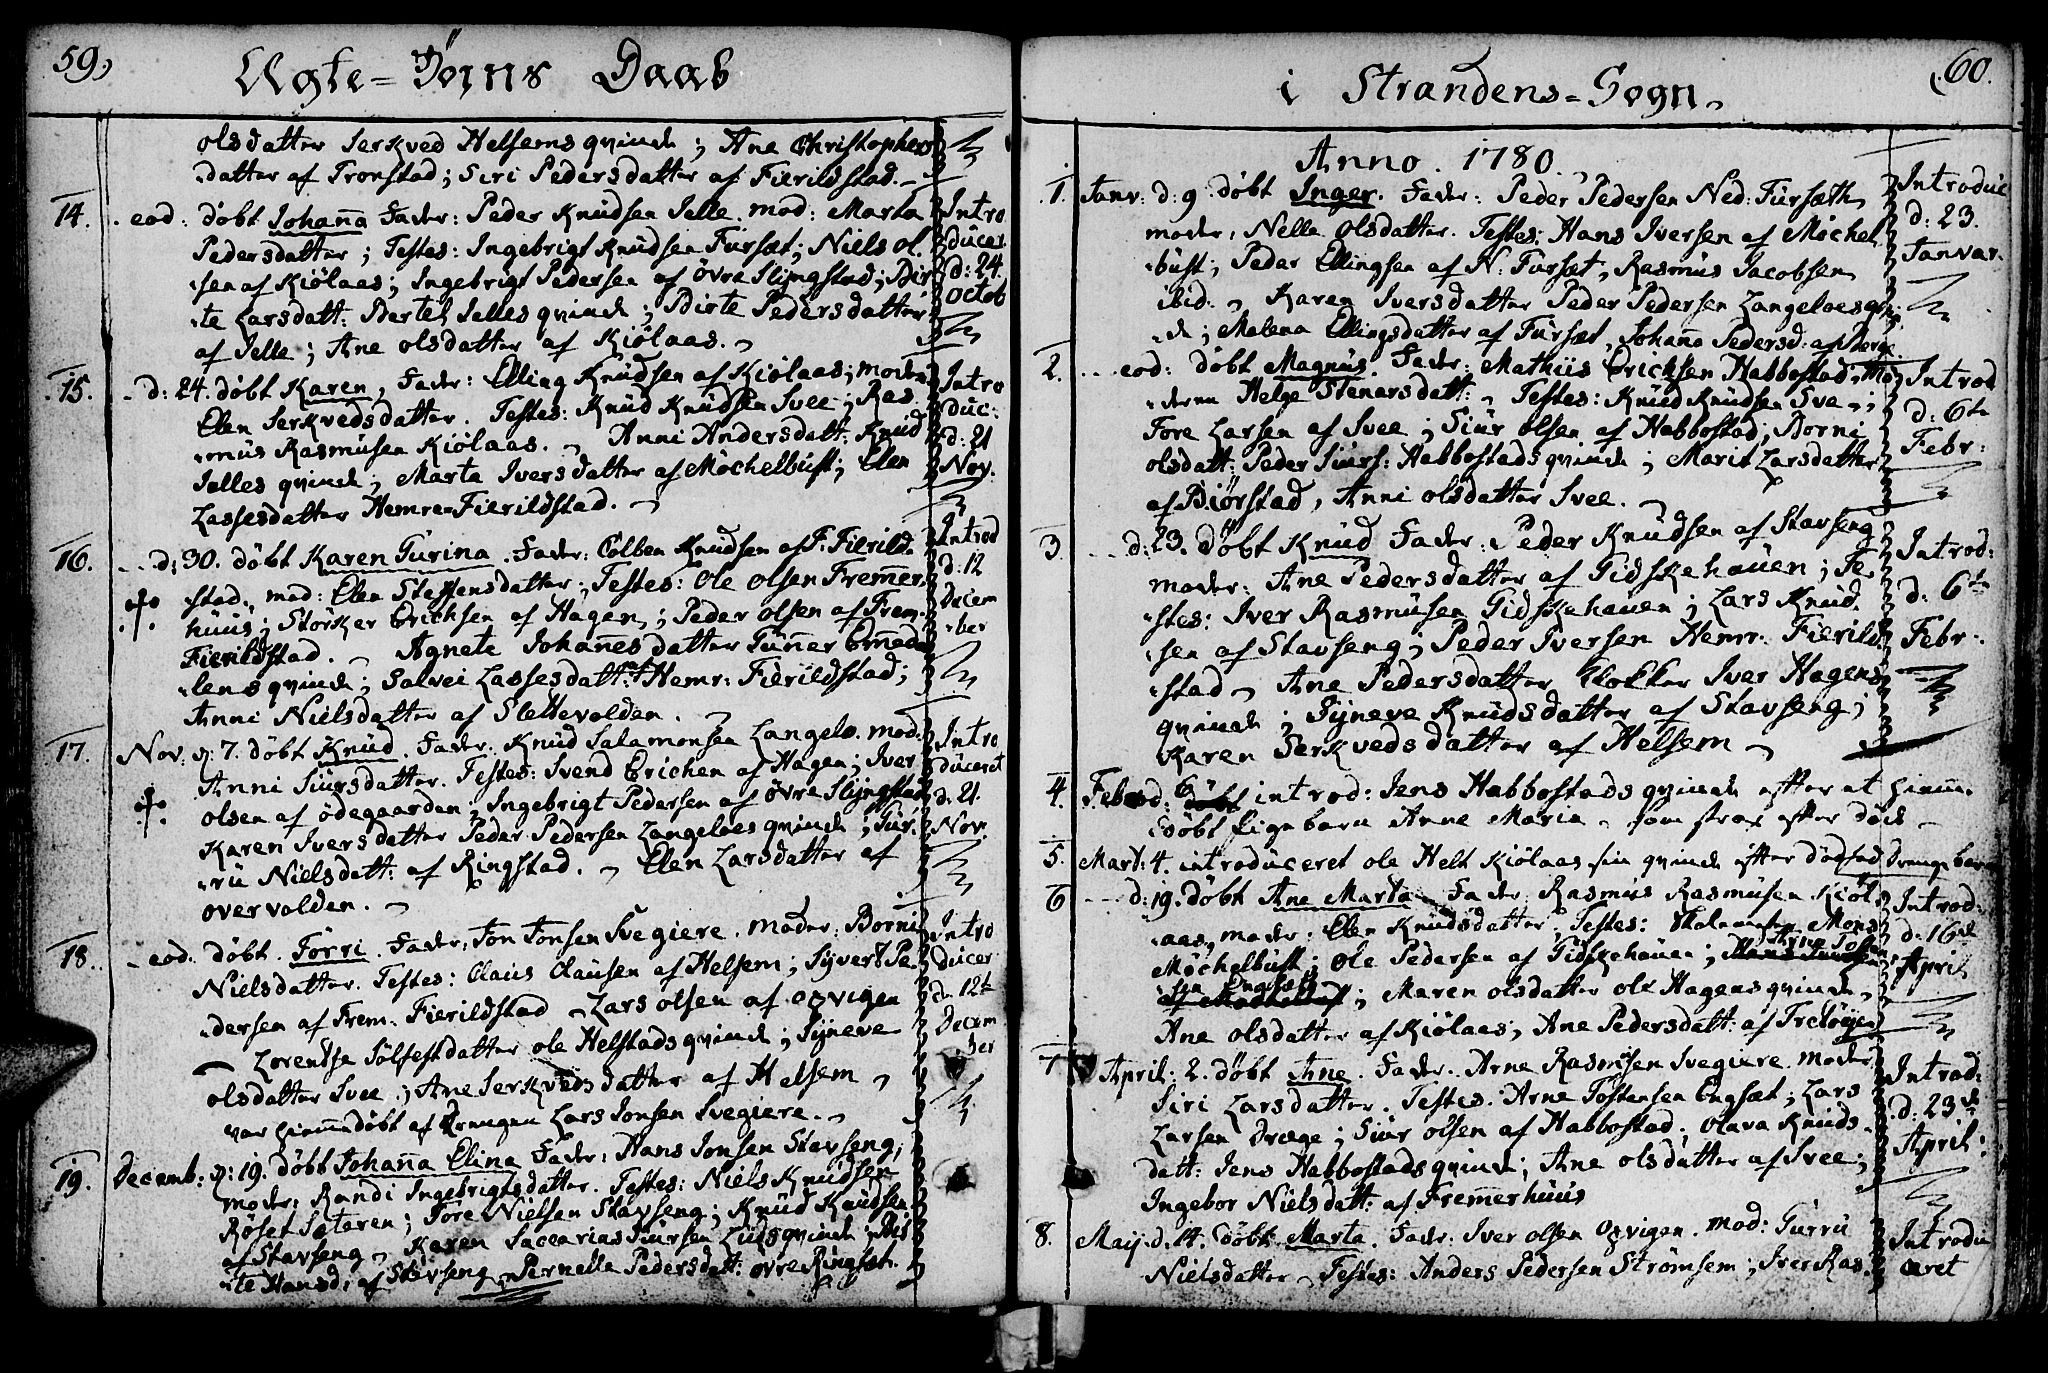 59.
Ægte-Börns Daab
olsdatter Serkved Helsems qvinde; Ane Christophers
datter af Tronstad; Siri Pedersdatter af Fierildstad.
14. eod: döbt Johaña Fader: Peder Knudsen Jelle. mod: Marta
Pedersdatter; Testes: Ingebrigt Knudsen Fürsæt; Niels ol-
sen af Kiölaas; Ingebrigt Pedersen af övre Slyngstad; Bir-
te Larsdatt: Bertel Jelles qvinde; Birte Pedersdatter
af Jelle; Ane olsdatter af Kiölaas.
Intro
ducer
d: 24.
Octob
15. d: 24. döbt Karen, Fader: Elling Knudsen af Kiölaas; moder:
Elen Serkvedsdatter. Testes: Knud Knudsen Svee; Ras-
mus Rasmusen Kiölaas. Anni Andersdatt: Knud
Jelles qvinde; Marta Iversdatter af Möchelbust; Elen
Lassesdatter Hemre-Fierildstad.
Intro
duc:
d: 21
Nov.
16. d: 30. döbt Karen Turina. Fader: Colben Knudsen af F: Fierild-
stad. mod: Elen Steffensdatter; Testes: Ole olsen Fremer-
huus; Störker Erichsen af Hagen; Peder olsen af Frem-
Fierildstad. Agnete Johañesdatter Guñer Emed-
lens qvinde; Salvei Lassesdatt: af Hemr: Fierildstad;
Anni Nielsdatter af Slettevolden.
Introd
d: 12
Decem
ber
17. Nov: d: 7. döbt Knud. Fader: Knud Salamonsen Langelo. mod:
Anni Siursdatter. Testes: Svend Erichen af Hagen; Iver
olsen af ödegaarden; Ingebrigt Pedersen af övre Slyngstad
Karen Iversdatter Peder Pedersen Langeloes qvinde; Gur-
ru Nielsdatt: af Ringstad. Elen Larsdatter af
overvolden.
Intro
duceret
d: 21.
Nov.
18. eod: döbt. Torri. Fader: Jon Jonsen Svegiere. Moder: Borni
Nielsdatter. Testes: Claus Clausen af Helsem; Syvert Pe-
dersen af Frem. Fierildstad Lars olsen af opvigen
Lorentse Sölfestdatter ole Helstads qvinde; Syneve
olsdatter Svee; Ane Serkvedsdatter af Helsem
var hiemedöbt af Drengen Lars Jonsen Svegiere.
Intro
ducer
d: 12te
Decem
ber
19. Decemb: d: 19. döbt Johaña Elina Fader: Hans Jonsen Stavseng;
moder: Randi Ingebrigtsdatter. Testes: Niels Knudsen
Röset Sæteren; Tore Nielsen Stavseng; Knud Knudsen
af Stavseng Karen Saccarias Siursen Luds qvinde; Bir-
te Hansd: af Stavseng Pernelle Pedersdatt: övre Ringset.
60.
i Strandens-Sogn
Anno. 1780.
1. Janv: d: 9. döbt Inger. Fader: Peder Pedersen Ned: Fursæth
moder: Nelle olsdatter. Testes: Hans Iversen af Möchel-
bust; Peder Ellingsen af N: Fursæt, Rasmus Jacobsen
ibid. Karen Iversdatter Peder Pedersen Langeloes qvin-
de; Malena Ellingsdatter af Fursæt, Johaña Pedersd: af Berge
Introduc
d: 23.
Janvar.
2. eod: döbt Magnus. Fader: Mathiis Ericksen Habbostad; Mo-
deren Helge Stenarsdatt: Testes: Knud Knudsen Sve;
Tore Larsen af Svee; Siur olsen af Habbostad; Borni
olsdatt: Peder Siurs: Habbostads qvinde; Marit Larsdatter
af Biörstad, Anni olsdatter Svee.
Introd
d: 6te
Febr:
3. d: 23. döbt Knud Fader: Peder Knudsen af Stavseng
moder: Ane Pedersdatter af Gidskehauen; Te-
stes: Iver Rasmusen Gidskehauen; Lars Knud-
sen af Stavseng; Peder Iversen Hemr. Fierild-
stad Ane Pedersdatter Klokker Iver Hagens
qvinde; Syneve Knudsdatter af Stavseng;
Karen Serkvedsdatter af Helsem
Introd:
d: 6te
Febr:
4. Febr: d: 6 introd: Jens Habbostads qvinde efter at hieme-
döbt Pigebarn Anne Maria som strax efter döde
5. Mart: 4. introduceret ole Helt Kiölaas sin qvinde efter dödföd Drengebarn
6 d: 19. döbt Ane Marta Fader Rasmus Rasmusen Kiöl-
aas, moder: Elen Knudsdatter, Testes: Skolemester Mons
Möchelbust; Ole Pedersen af Gidskehauen; Arne Tosten
sen Engsæt; Maren olsdatter ole Hagens qvinde,
Ane olsdatter af Kiölaas; Ane Pedersdatt: af Tretöyen
Introd:
d: 16de
April
7 April: 2. döbt Ane. Fader: Arne Rasmusen Svegiere. moder
Siri Larsdatter. Testes. Arne Tostensen Engsæt; Lars
Larsen Dræge; Siur olsen af Habbostad; olava Knuds-
datt: Jens Habbostads qvinde; Ane olsdatter af Svee;
Ingebor Nielsdatt: af Fremerhuus
Introd:
d: 23de
April:
8. Maij: d: 14. döbt Marta. Fader: Iver olsen Opvigen. mod: Gurru
Nielsdatter Testes: Anders Pedersen Strömsem; Iver Ras-
Introdu
ceret